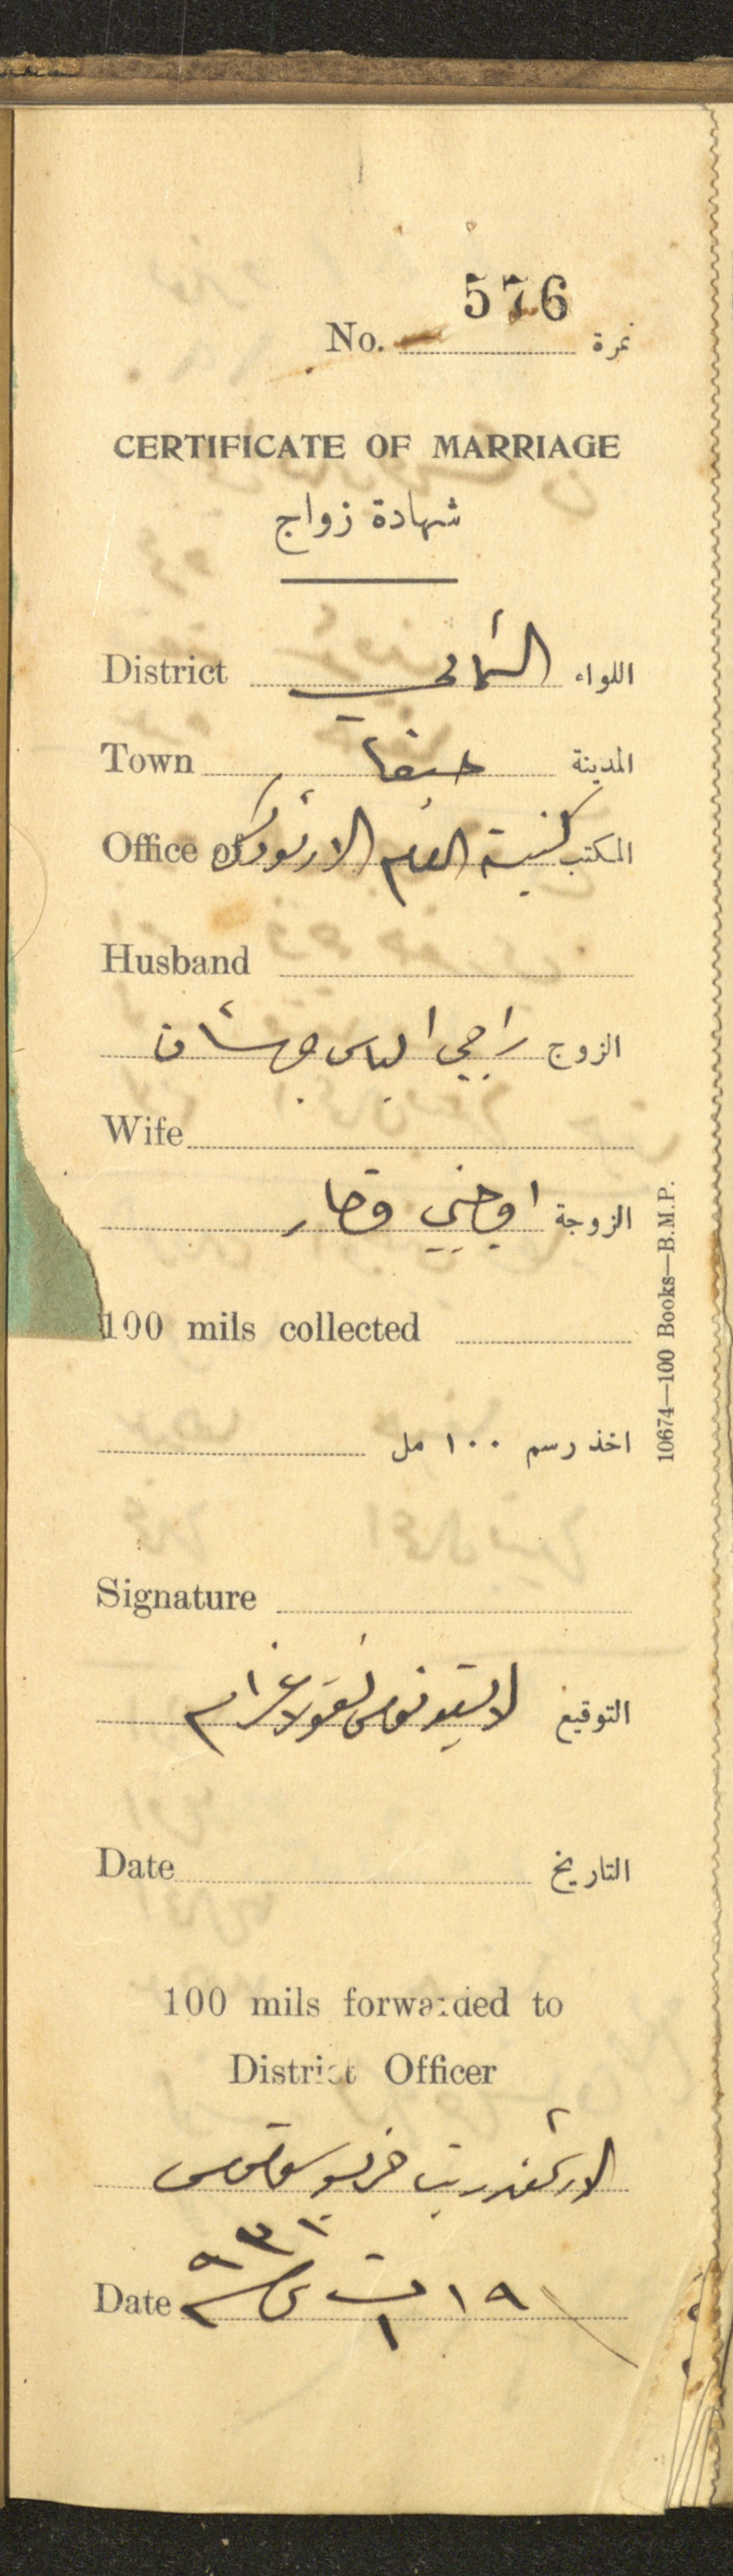 576
No. نمرة
CERTIFICATE OF MARRIAGE
شهادة زواج
District الشمالي اللواء
Town حيفا المدينة
Office of كنيسة الروم الارثوذكس المكتب
Husband
الزوج راجي الياس جهشان
Wife
الزوجة اوجني قطار
100 mils collected
اخذ رسم ١٠٠ مل
Signature
التوقيع نقولا
Date التاريخ
100 mils forwarded to
District Officer
الارشمندريت
Date ١٩ ت١
10674—100 Books—B.M.P.